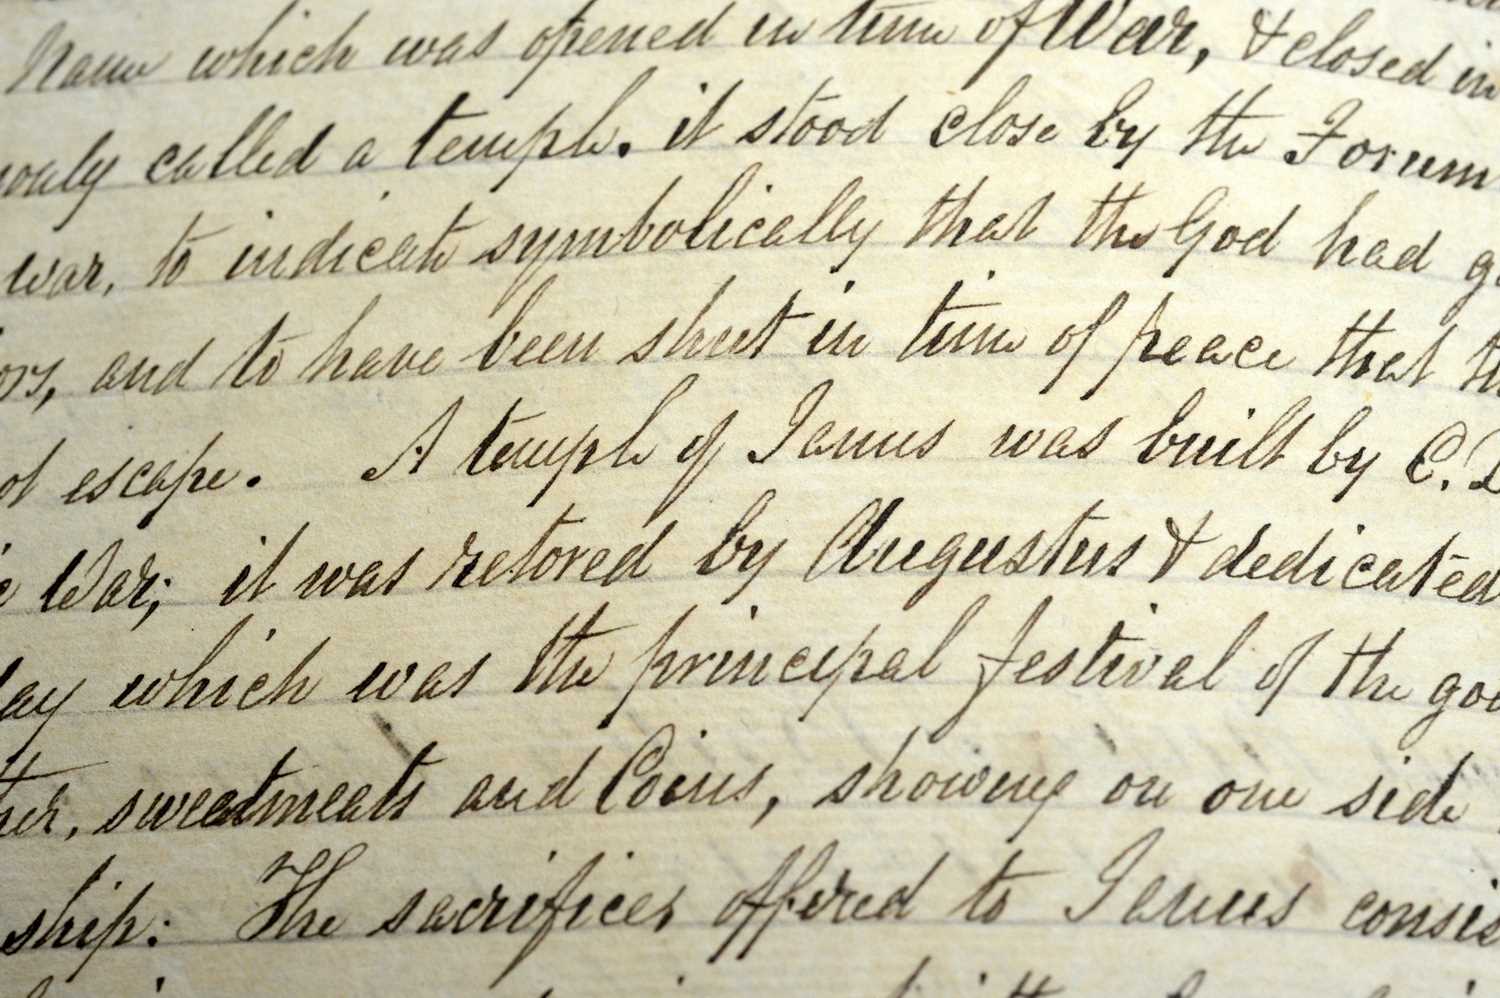 name which was opened in time of War, & closed in
only called a temple. it stood close by the Forum
war, to indicate symbolically that the God had g
ors, and to have been shut in time of peace that th
ot escape. A temple of Janus was built by C. D
c War; it was retored by Augustus & dedicated
day which was the principal festival of the god
ther, sweetmeats and Coins, showing on one side
ship: The sacrifices offered to Janus consis